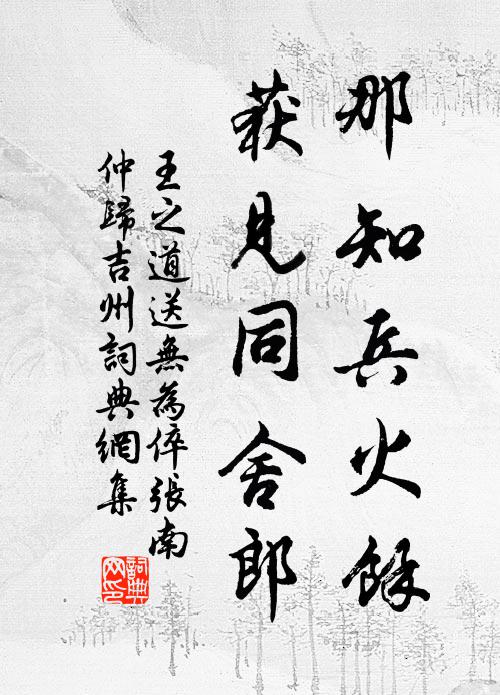 那知兵火餘
获見同舍郎
王之道送無為倅張南
仲歸吉州詞典網集
詞典网印